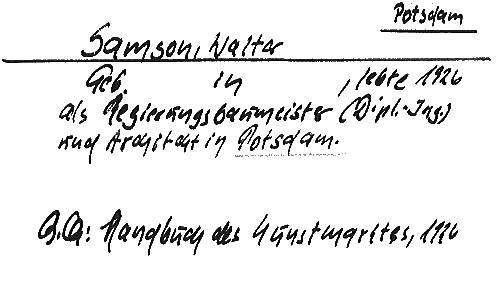 Potsdam
Samson, Walter
Geb. in , lebte 1926
als Regierungsbaumeister (Dipl.-Ing.)
und Architekt in Potsdam.
Q.A.: Handbuch des Kunstmarktes, 1926